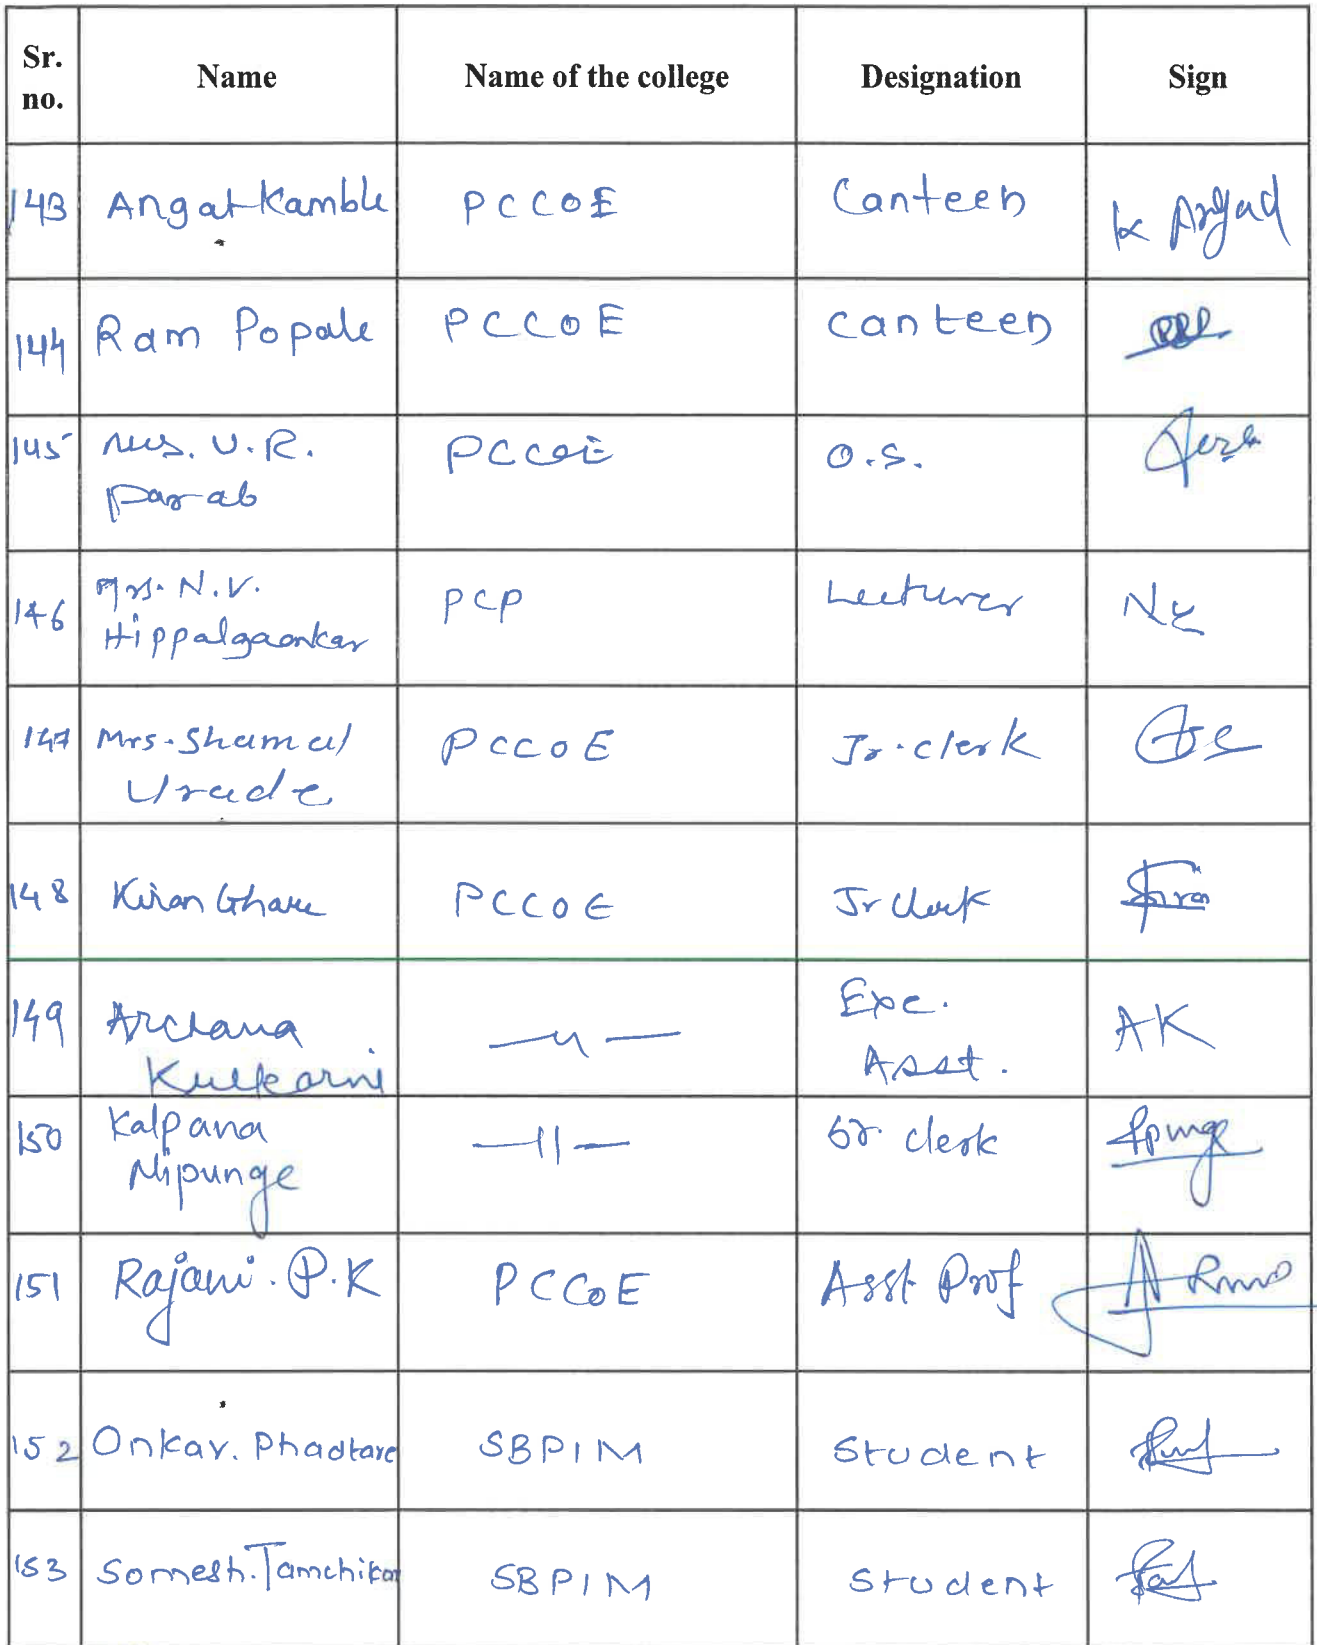 Sr. no. Name Name of the college Designation Sign
143 Angat Kamble PCCOE Canteen K Angad
144 Ram Popale PCCOE Canteen
145 Mrs. U.R. Parab PCCOE O.S.
146 Mrs. N.V. Hippalgaonkar PCP Lecturer
147 Mrs. Shamal Urade PCCOE Jr. clerk
148 Kiran Ghare PCCOE Jr Clerk
149 Archana Kulkarni —"— Exe. Asst. AK
150 Kalpana Nipunge —"— Sr. clerk
151 Rajani. P.K PCCOE Asst Prof
152 Onkar. Phadtare SBPIM Student
153 Somesh. Tamchikar SBPIM Student